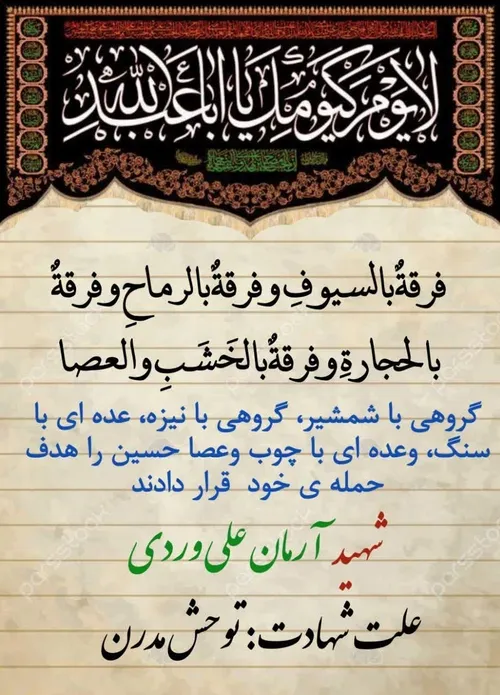 لا یوم کیومک یا اباعبدالله
فرقةٌ بالسیوفِ و فرقةٌ بالرماحِ و فرقةٌ
بالحجارةِ و فرقةٌ بالخَشَبِ و العصا
گروهی با شمشیر، گروهی با نیزه، عده ای با
سنگ، وعده ای با چوب وعصا حسین را هدف
حمله ی خود قرار دادند
شهید آرمان علی وردی
علت شهادت: توحش مدرن